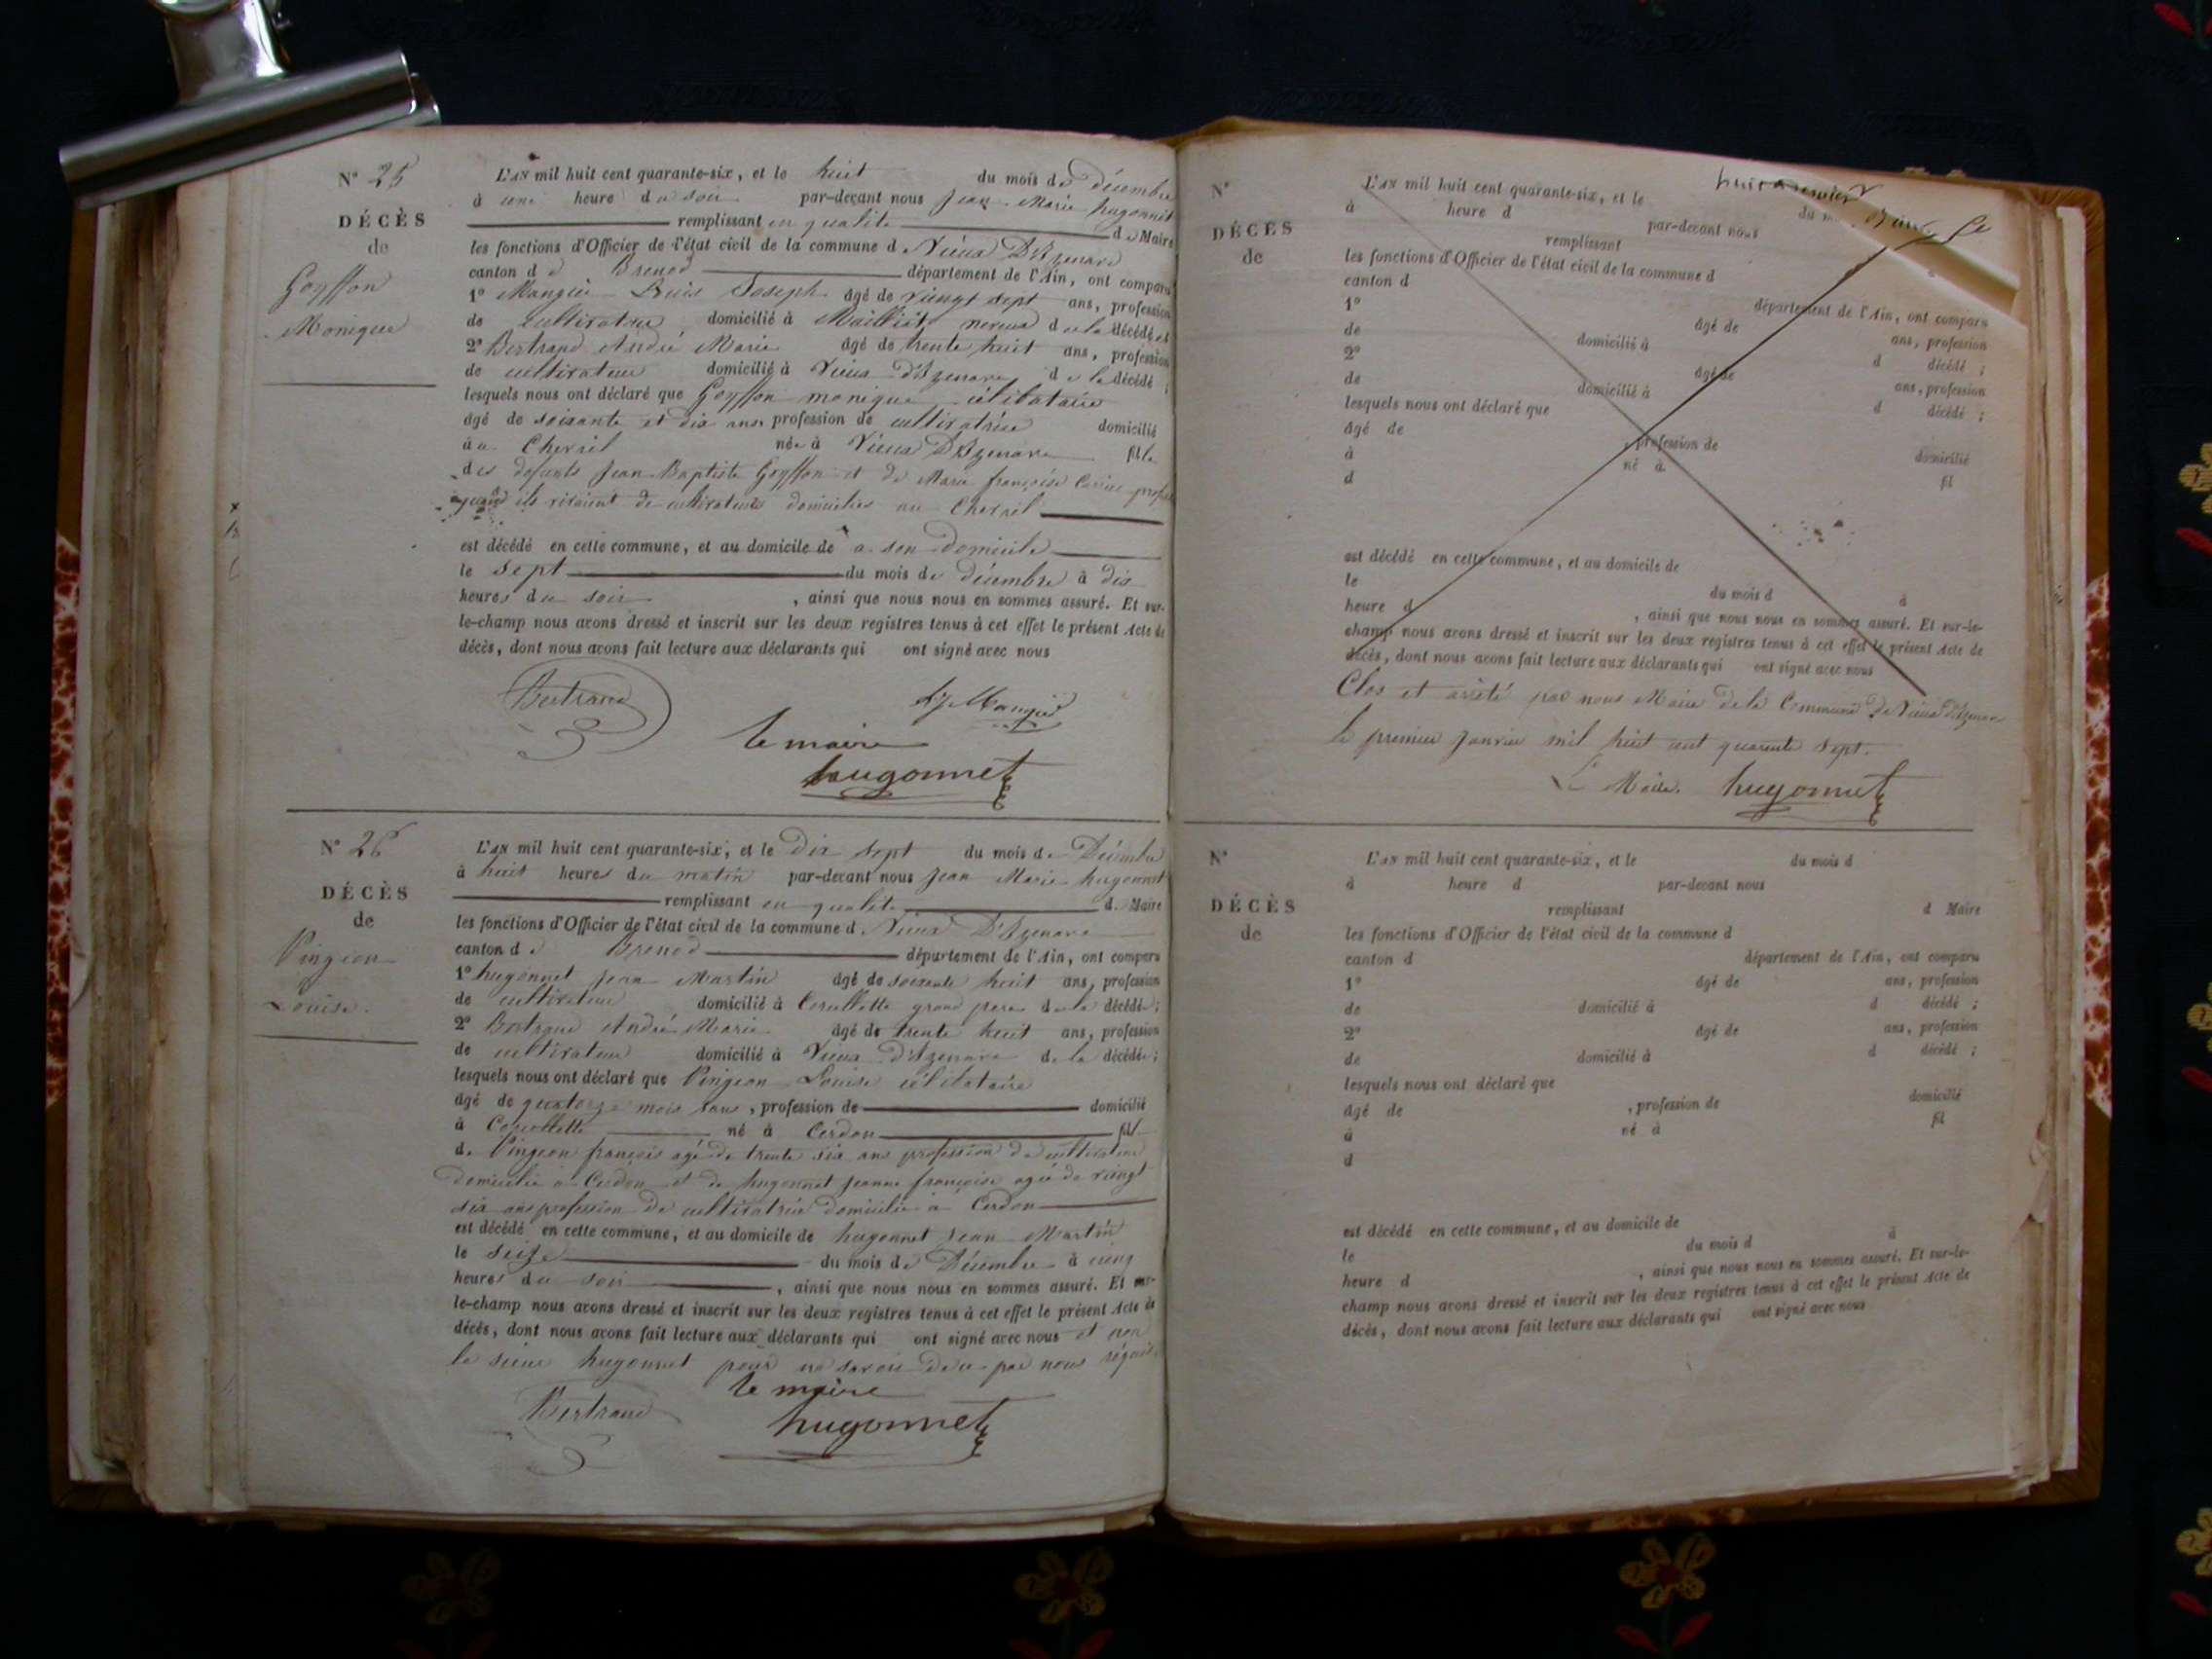 N° 25
DÉCÈS
de
Goyffon
Monique
L'AN mil huit cent quarante-six, et le huit du mois de décembre
à une heure du soir par-devant nous Jean Marie hugonnet
remplissant en qualité de Maire
les fonctions d'Officier de l'état civil de la commune de Vieux D'Izenave
canton de Brenod département de l'Ain, ont comparu
1° Mangié Louis Joseph âgé de vingt sept ans, profession
de cultivateur domicilié à Mailliat neveux de la décédée et
2° Bertrand André Marie âgé de trente huit ans, profession
de cultivateur domicilié à Vieux d'Izenave de la décédé ;
lesquels nous ont déclaré que Goyffon monique célibataire
âgé de soixante et dix ans profession de cultivatrice domicilié
au Chevril née à Vieux D'Izenave fille
des defunts Jean Baptiste Goyffon et de Marie françoise
quand ils vivaient de cultivateurs domiciliés au Chevril
est décédé en cette commune, et au domicile de a son domicile
le sept du mois de décembre à dix
heures du soir , ainsi que nous nous en sommes assuré. Et sur-
le-champ nous avons dressé et inscrit sur les deux registres tenus à cet effet le présent Acte de
décès, dont nous avons fait lecture aux déclarants qui ont signé avec nous
Bertrand
le maire
hugonnet
N° 26
DÉCÈS
de
Pingeon
Louise
L'AN mil huit cent quarante-six, et le Dix sept du mois de Décembre
à huit heures du matin par-devant nous Jean Marie hugonnet
remplissant en qualité de Maire
les fonctions d'Officier de l'état civil de la commune de Vieux D'Izenave
canton de Brenod département de l'Ain, ont comparu
1° hugonnet jean Martin âgé de soixante huit ans, profession
de cultivateur domicilié à grand pere de la décédée ;
2° Bertrand André Marie âgé de trente huit ans, profession
de cultivateur domicilié à Vieux d'Izenave de la décédée ;
lesquels nous ont déclaré que Pingeon Louise célibataire
âgé de quatorze mois sans , profession de domicilié
à né à Cerdon fil
de Pingeon françois agé de trente six ans profession de cultivateur
domicilié a Cerdon et de hugonnet jeanne françoise agée de vingt
six ans profession de cultivatrice domiciliée a Cerdon
est décédé en cette commune, et au domicile de hugonnet Jean Martin
le seize du mois de Décembre à cinq
heures du soir , ainsi que nous nous en sommes assuré. Et sur-
le-champ nous avons dressé et inscrit sur les deux registres tenus à cet effet le présent Acte de
décès, dont nous avons fait lecture aux déclarants qui ont signé avec nous et non
le sieur hugonnet pour ne savoir de ce par nous réquis
Bertrand
le maire
hugonnet
N°
DÉCÈS
de
L'AN mil huit cent quarante-six, et le du m
à heure d par-devant nous
remplissant
les fonctions d'Officier de l'état civil de la commune d
canton d département de l'Ain, ont comparu
1° âgé de ans, profession
de domicilié à d décédé ;
2° âgé de ans, profession
de domicilié à d décédé ;
lesquels nous ont déclaré que
âgé de , profession de domicilié
à né à fil
d
est décédé en cette commune, et au domicile de
le du mois d à
heure d , ainsi que nous nous en sommes assuré. Et sur-le-
champ nous avons dressé et inscrit sur les deux registres tenus à cet effet le présent Acte de
décès, dont nous avons fait lecture aux déclarants qui ont signé avec nous
Clos et arrêté par nous Maire de la Commune de Vieux d'Izenave
le premier Janvier mil huit cent quarante sept.
Le Maire. hugonnet
N°
DÉCÈS
de
L'AN mil huit cent quarante-six, et le du mois d
à heure d par-devant nous
remplissant d Maire
les fonctions d'Officier de l'état civil de la commune d
canton d département de l'Ain, ont comparu
1° âgé de ans, profession
de domicilié à d décédé ;
2° âgé de ans, profession
de domicilié à d décédé ;
lesquels nous ont déclaré que
âgé de , profession de domicilié
à né à fil
d
est décédé en cette commune, et au domicile de
le du mois d à
heure d , ainsi que nous nous en sommes assuré. Et sur-le-
champ nous avons dressé et inscrit sur les deux registres tenus à cet effet le présent Acte de
décès, dont nous avons fait lecture aux déclarants qui ont signé avec nous